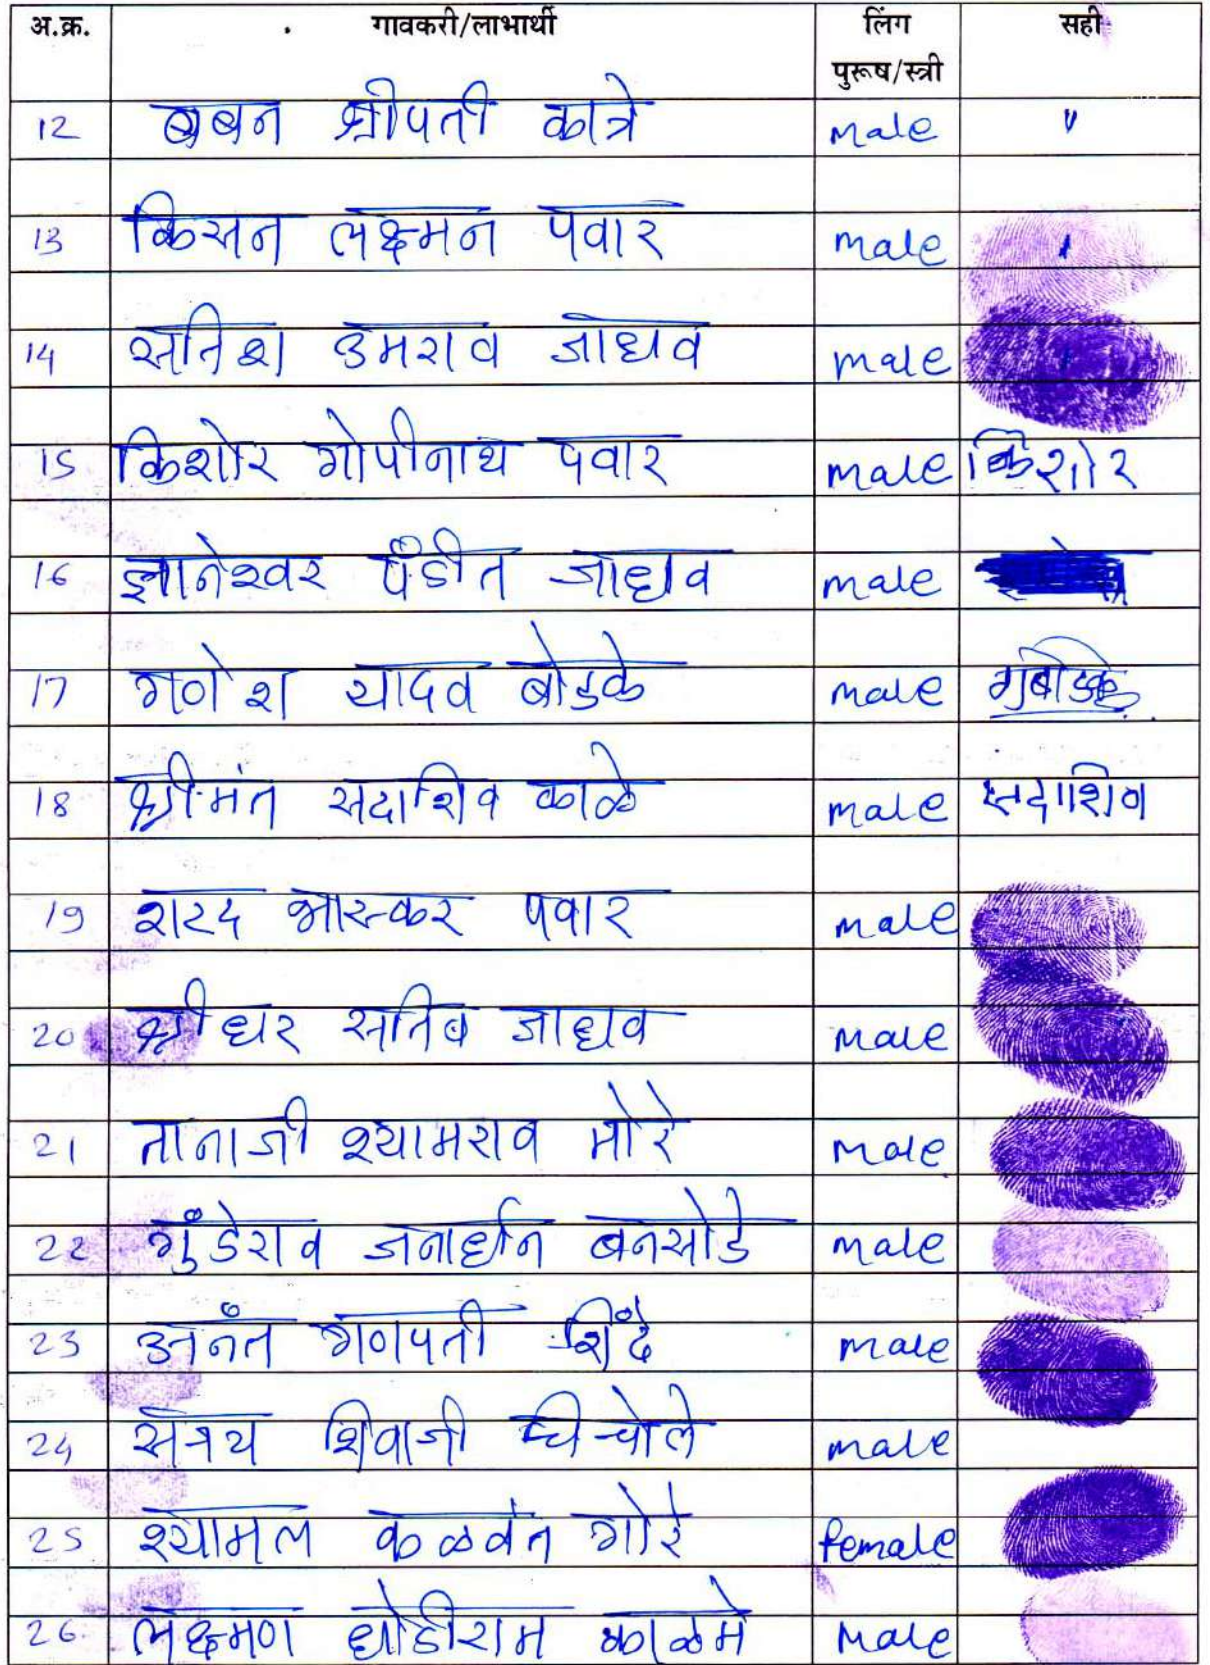 अ.क्र. गावकरी/लाभार्थी लिंग सही
पुरूष/स्त्री
12 बबन श्रीपती कात्रे male "
13 किसन लक्ष्मन पवार male
14 सतिश उमराव जाधव male
15 किशोर गोपीनाथ पवार male किशोर
16 ज्ञानेश्वर पंडीत जाधव male
17 गणेश यादव बोडके male गुबोडके
18 श्रीमंत सदाशिव काळे male सदाशिव
19 शरद भास्कर पवार male
20 श्रीधर सतिब जाधव male
21 तानाजी श्यामराव मोरे male
22 गुंडेराव जनार्धन बनसोडे male
23 अनंत गणपती शिंदे male
24 शिवाजी male
25 श्यामल कळवंत गोरे female
26 लक्ष्मण धोंडीराम काळमे male